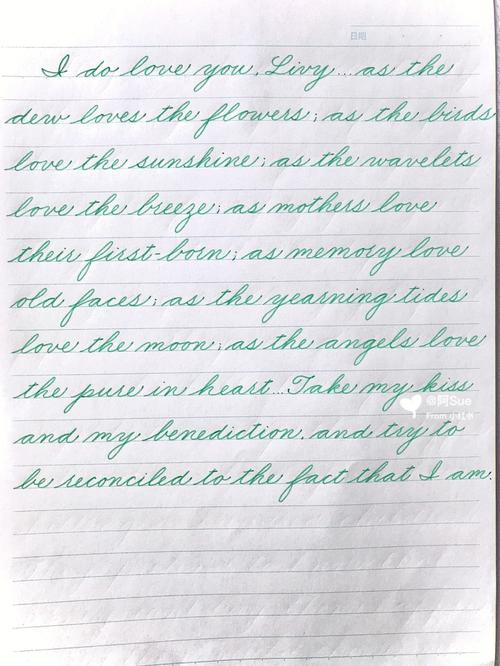 日期
I do love you, Livy...as the
dew loves the flowers; as the birds
love the sunshine; as the wavelets
love the breeze; as mothers love
their first-born; as memory love
old faces; as the yearning tides
love the moon; as the angels love
the pure in heart...Take my kiss
@阿Sue
From 小红书
and my benediction, and try to
be reconciled to the fact that I am.